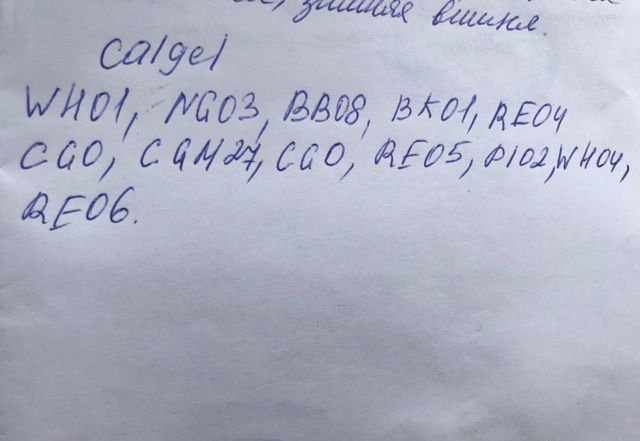 зимняя вишня.
Calgel
WH01, NG03, BB08, BK01, RE04
CG0, CGM27, CG0, RE05, PI02, WH04,
RE06.